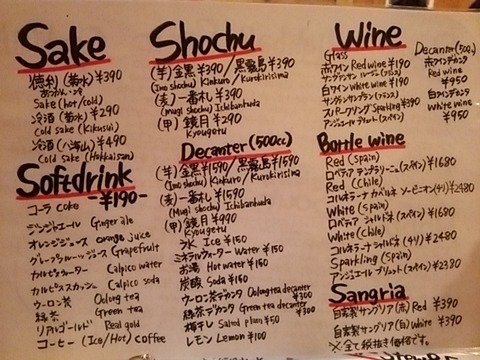 Sake
徳利 (菊水) ¥390
あつかん・冷
Sake (hot/cold)
冷酒 (菊水) ¥290
cold sake (Kikusui)
冷酒 (八海山) ¥490
Cold sake (Hakkaisan)
Softdrink
-¥190-
コーラ Coke
ジンジャエール Ginger ale
オレンジジュース orange juice
グレープフルーツジュース Grapefruit
カルピスウォーター Calpico water
カルピスカッスジャ Calpico soda
ウーロン茶 Oolong tea
緑茶 Green tea
リアルゴールド Real gold
コーヒー (Ice/Hot) coffee
Shochu
(芋) 金黒 ¥390/黒霧島 ¥390
(Imo shochu) Kinkuro/Kurokirisima
(麦) 一番札 ¥390
(mugi Shochu) Ichibanhuda
(甲) 鏡月 ¥290
Kyougetu
Decanter (500cc)
(芋) 金黒 ¥1590/黒霧島 ¥1590
(Imo shochu) Kinkuro/Kurokirisima
(麦) 一番札 ¥1590
(Mugi Shochu) Ichibanhuda
(甲) 鏡月 ¥990
Kyougetu
氷 Ice ¥150
ミネラルウォーター Water ¥150
お湯 Hot water ¥150
炭酸 Soda ¥150
ウーロン茶デカンタ Oolong tea decanter ¥300
緑茶デカンタ Green tea decanter ¥300
梅干し Salted plum ¥50
レモン Lemon ¥100
Wine
Glass
赤ワイン Red wine ¥190
サンヴァンサン ルージュ (フランス)
白ワイン White wine ¥190
サンヴァンサンブラン (フランス)
スパークリング Sparkling ¥390
アンジュエール ブリュット (スペイン)
Decanter (500cc)
赤ワインデカンタ
Red wine
¥950
白ワインデカンタ
White wine
¥950
Bottle wine
Red (Spain)
ロペテア テンプラリーニョ (スペイン) ¥1680
Red (Chile)
コルネラーナ カベルネ ソービニオン (チリ) ¥2480
White (Spain)
ロペテア シャルドネ (スペイン) ¥1680
White (Chile)
コルネラーナ シャルドネ (チリ) ¥2480
Sparkling (Spain)
アンジュエール ブリュット (スペイン) ¥2380
Sangria
自家製サングリア (赤) Red ¥390
自家製サングリア (白) White ¥390
※全て税抜き価格です。